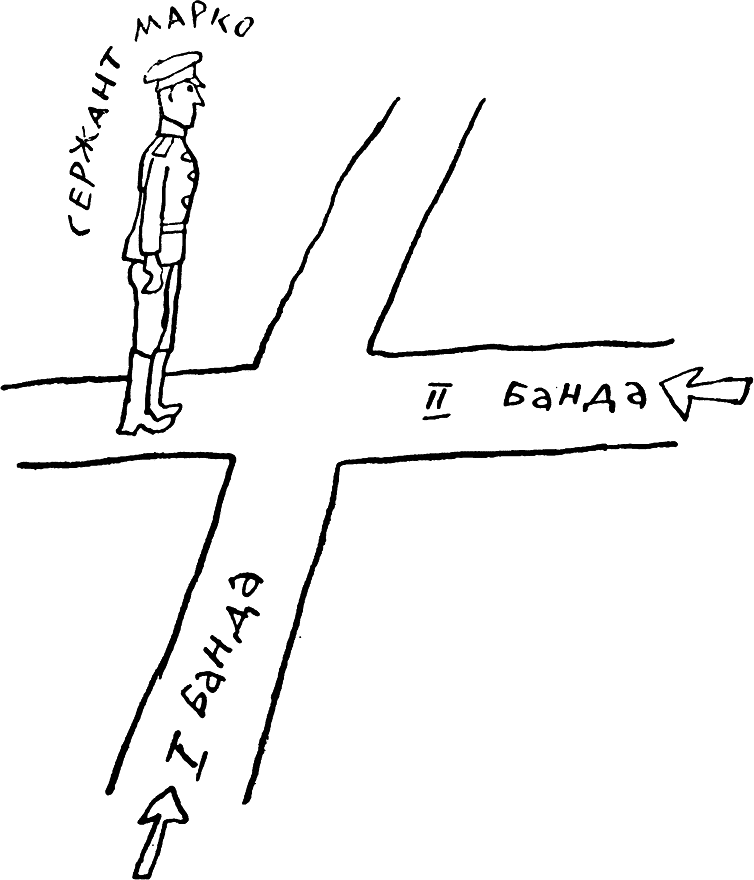 СЕРЖАНТ МАРКО
II банда
I банда